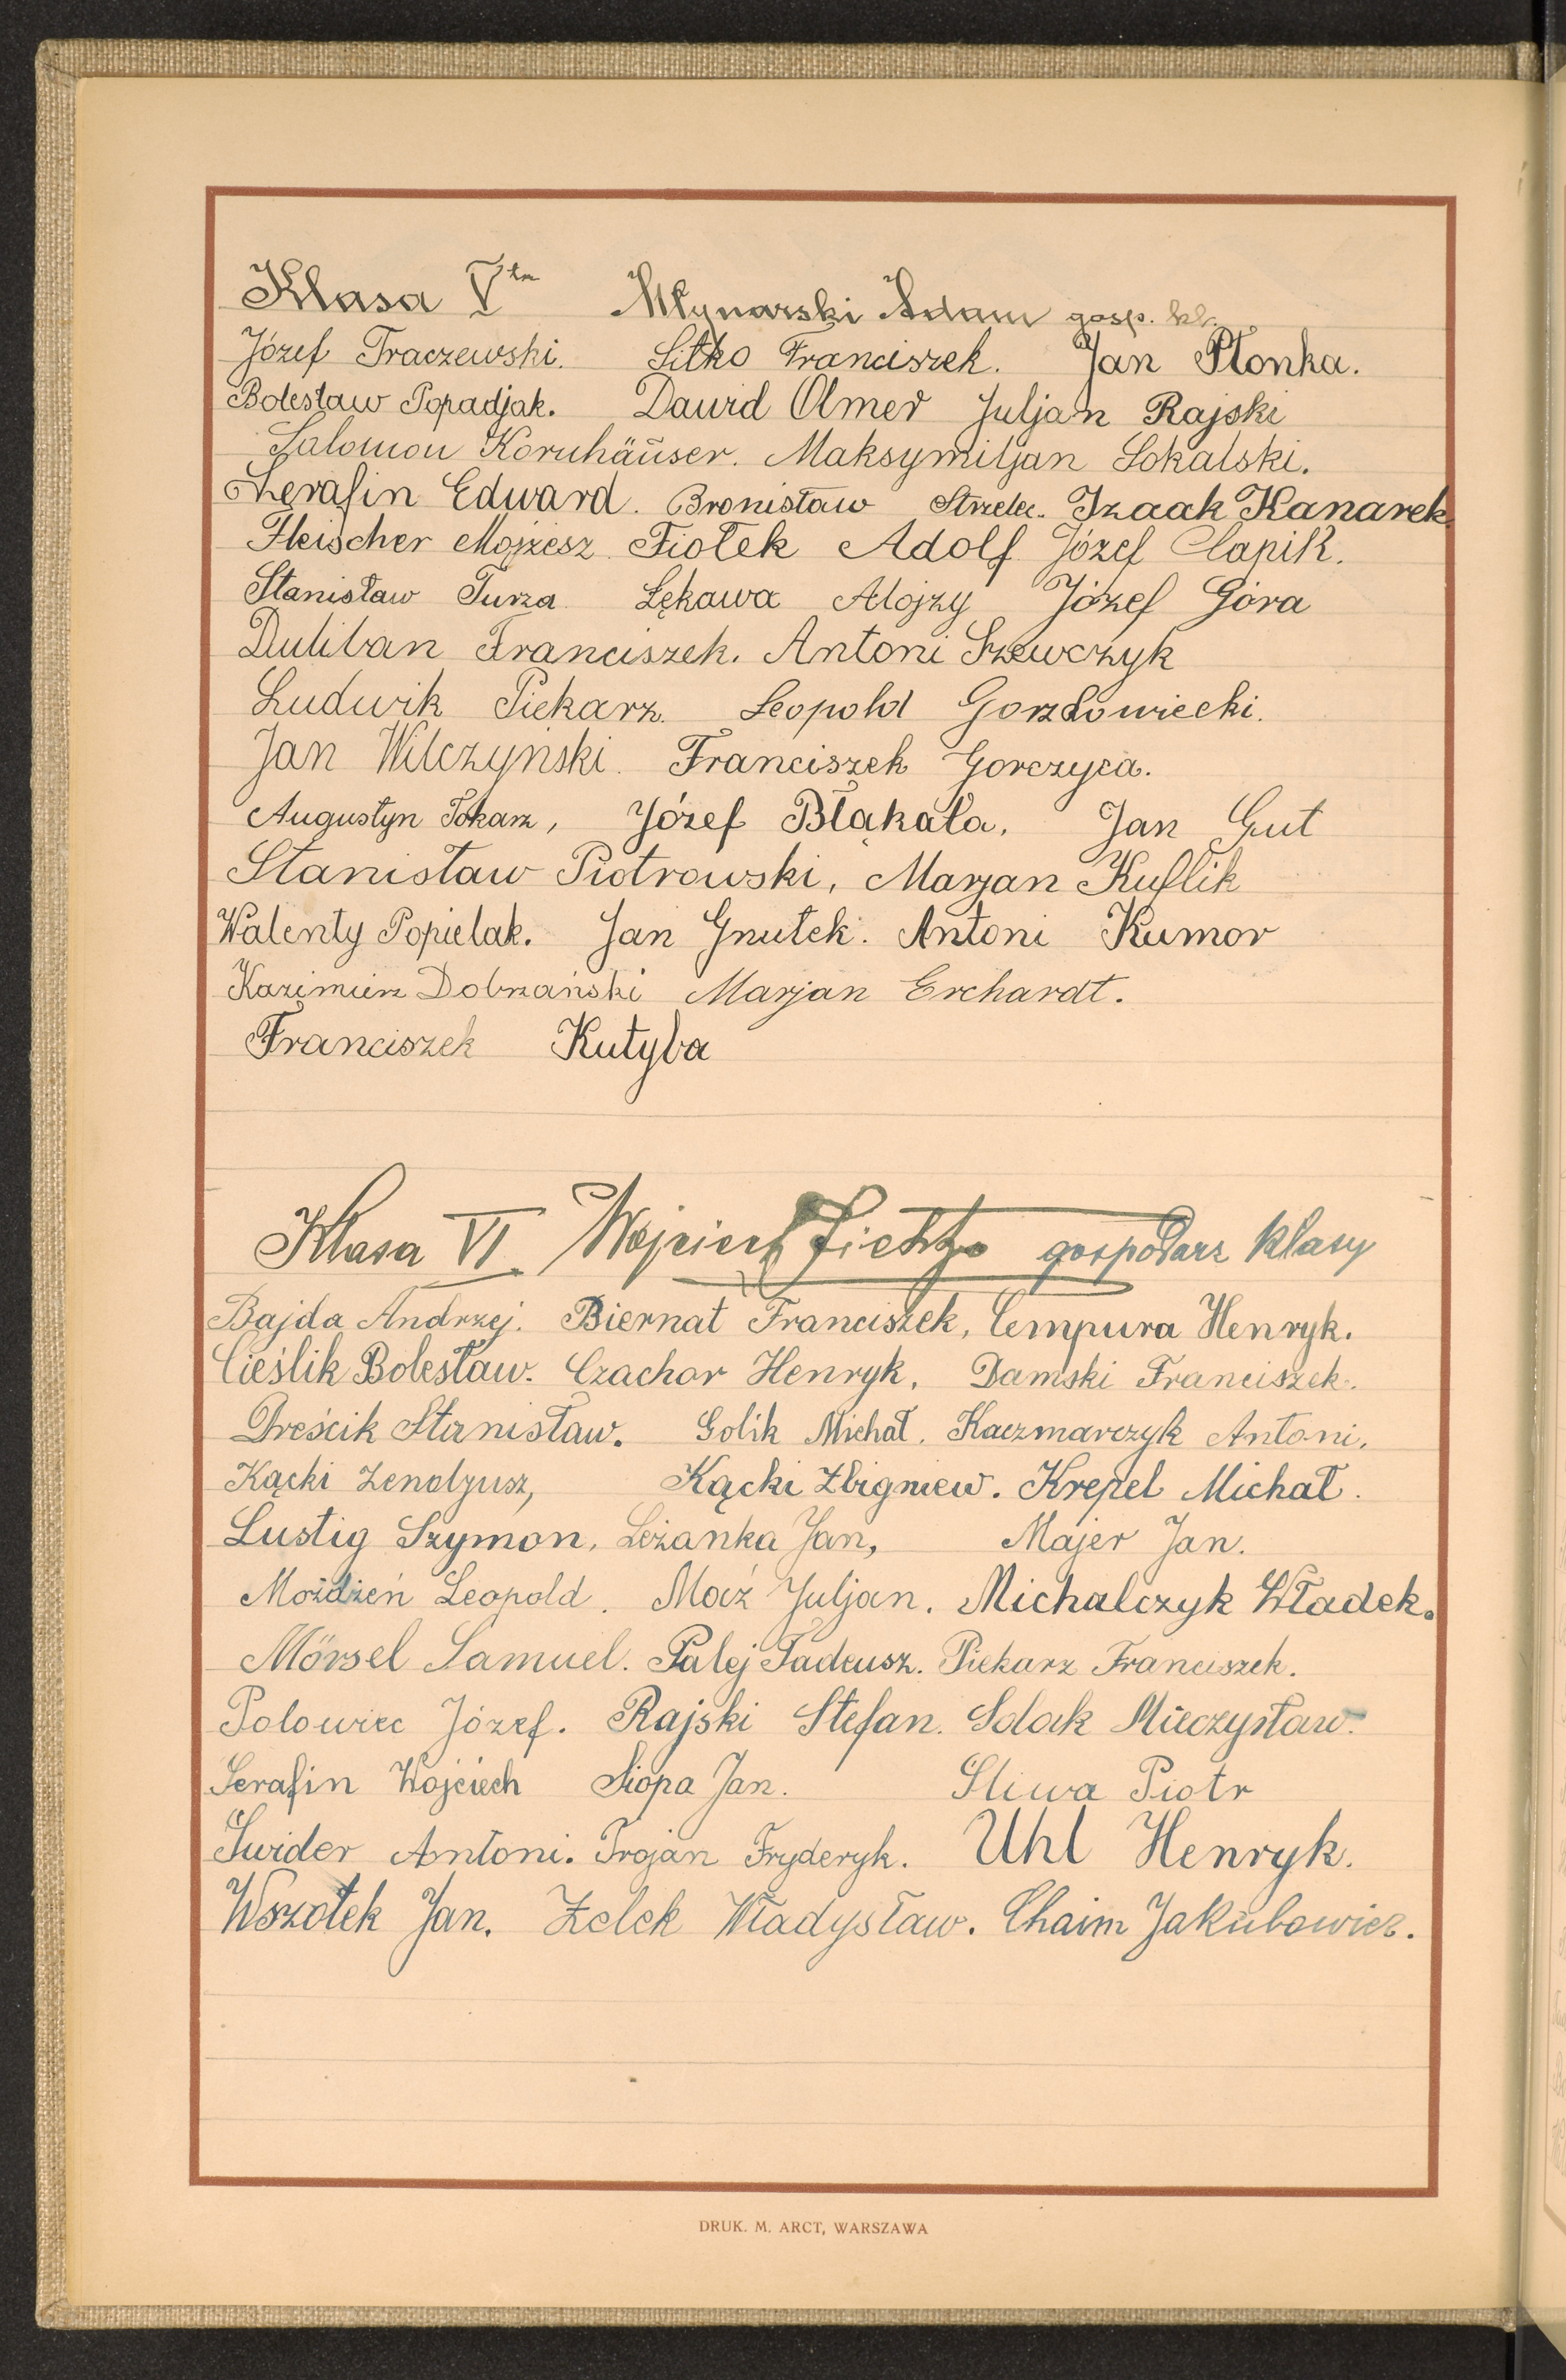 Klasa V ta Młynarski Adam gosp. kl.
Józef Traczewski. Sitko Franciszek. Jan Płonka.
Bolesław Popadjak. Dawid Olmer Juljan Rajski
Salomon Kornhäuser. Maksymiljan Sokalski.
Serafin Edward. Bronisław Strzelec. Izaak Kanarek
Fleischer Mojżesz Fiołek Adolf Józef Cłapik.
Stanisław Turza Łękawa Alojzy Józef Góra
Duliban Franciszek. Antoni Szewczyk
Ludwik Piekarz. Leopold Gorzkowiecki.
Jan Wilczyński. Franciszek Gorczyca.
Augustyn Tokarz, Józef Błąkała, Jan Gut
Stanisław Piotrowski, Marjan Kuflik
Walenty Popielak. Jan Gnutek. Antoni Kumor
Kazimierz Dobrzański Marjan Erchardt.
Franciszek Kutyba
Klasa VI Wojciech gospodarz klasy
Bajda Andrzej. Biernat Franciszek, Cempura Henryk.
Cieślik Bolesław. Czachor Henryk, Damski Franciszek.
Dreścik Stanisław. Golik Michał. Kaczmarczyk Antoni.
Kącki Zenobjusz, Kącki Zbigniew. Krepel Michał.
Lustig Szymon, Leżanka Jan, Majer Jan.
Moździeń Leopold. Moźź Juljan. Michalczyk Władek.
Mörsel Samuel. Palej Tadeusz. Piekarz Franciszek.
Polowiec Józef. Rajski Stefan. Solak Mieczysław.
Serafin Wojciech Siopa Jan. Śliwa Piotr
Świder Antoni. Trojan Fryderyk. Uhl Henryk.
Wszołek Jan. Żelek Władysław. Chaim Jakubowicz.
DRUK. M. ARCT, WARSZAWA